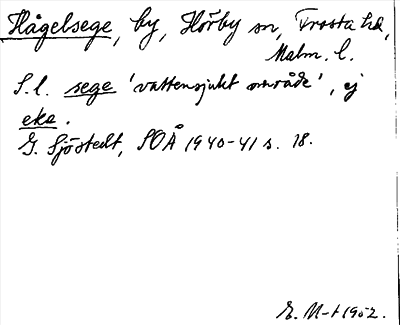 Hågelsege, by, Hörby sn, Frosta hd,
Malm. l.
S.l. sege 'vattensjukt område', ej
eke.
G. Sjöstedt, SOÅ 1940-41 s. 18.
E. M-t 1952.